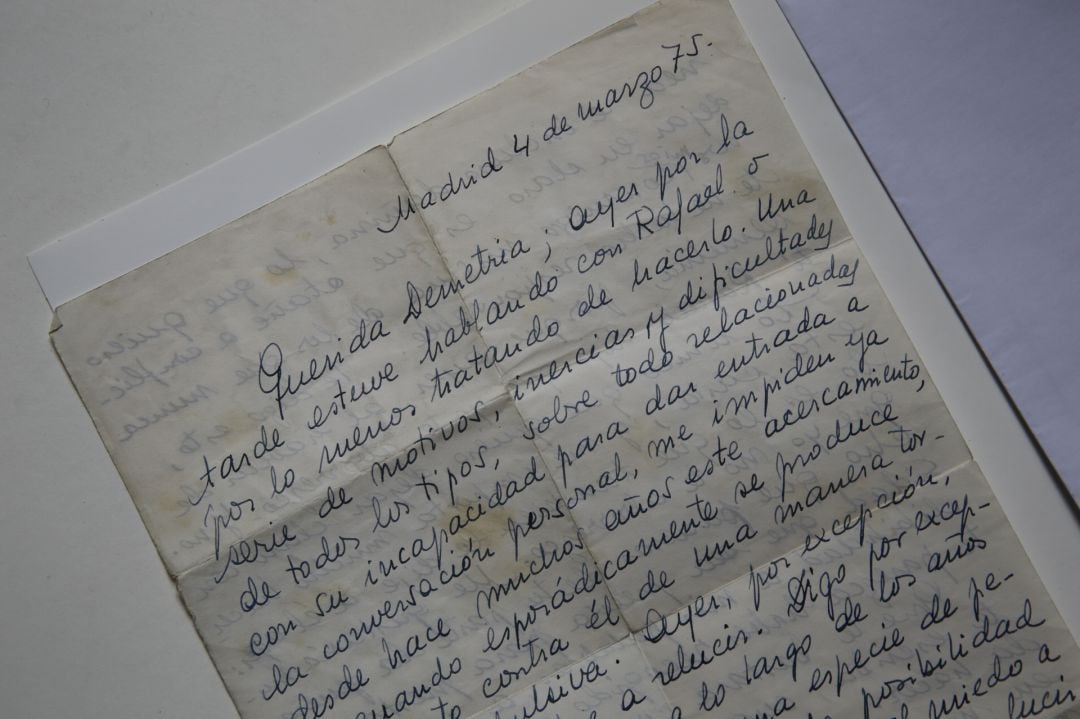 Madrid 4 de marzo 75.
Querida Demetria; ayer por la
tarde estuve hablando con Rafael o
por lo menos tratando de hacerlo. Una
serie de motivos, inercias y dificultades
de todos los tipos, sobre todo relacionadas
con su incapacidad para dar entrada a
la conversación personal, me impiden ya
desde hace muchos años este acercamiento,
cuando esporádicamente se produce,
contra él de una manera tor-
Ayer, por excepción,
a relucir. Digo por excep-
a lo largo de los años
una especie de pe-
posibilidad
miedo a
lucir